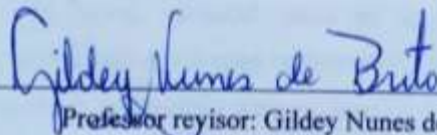 Gildey Nunes de Brito
Professor revisor: Gildey Nunes d